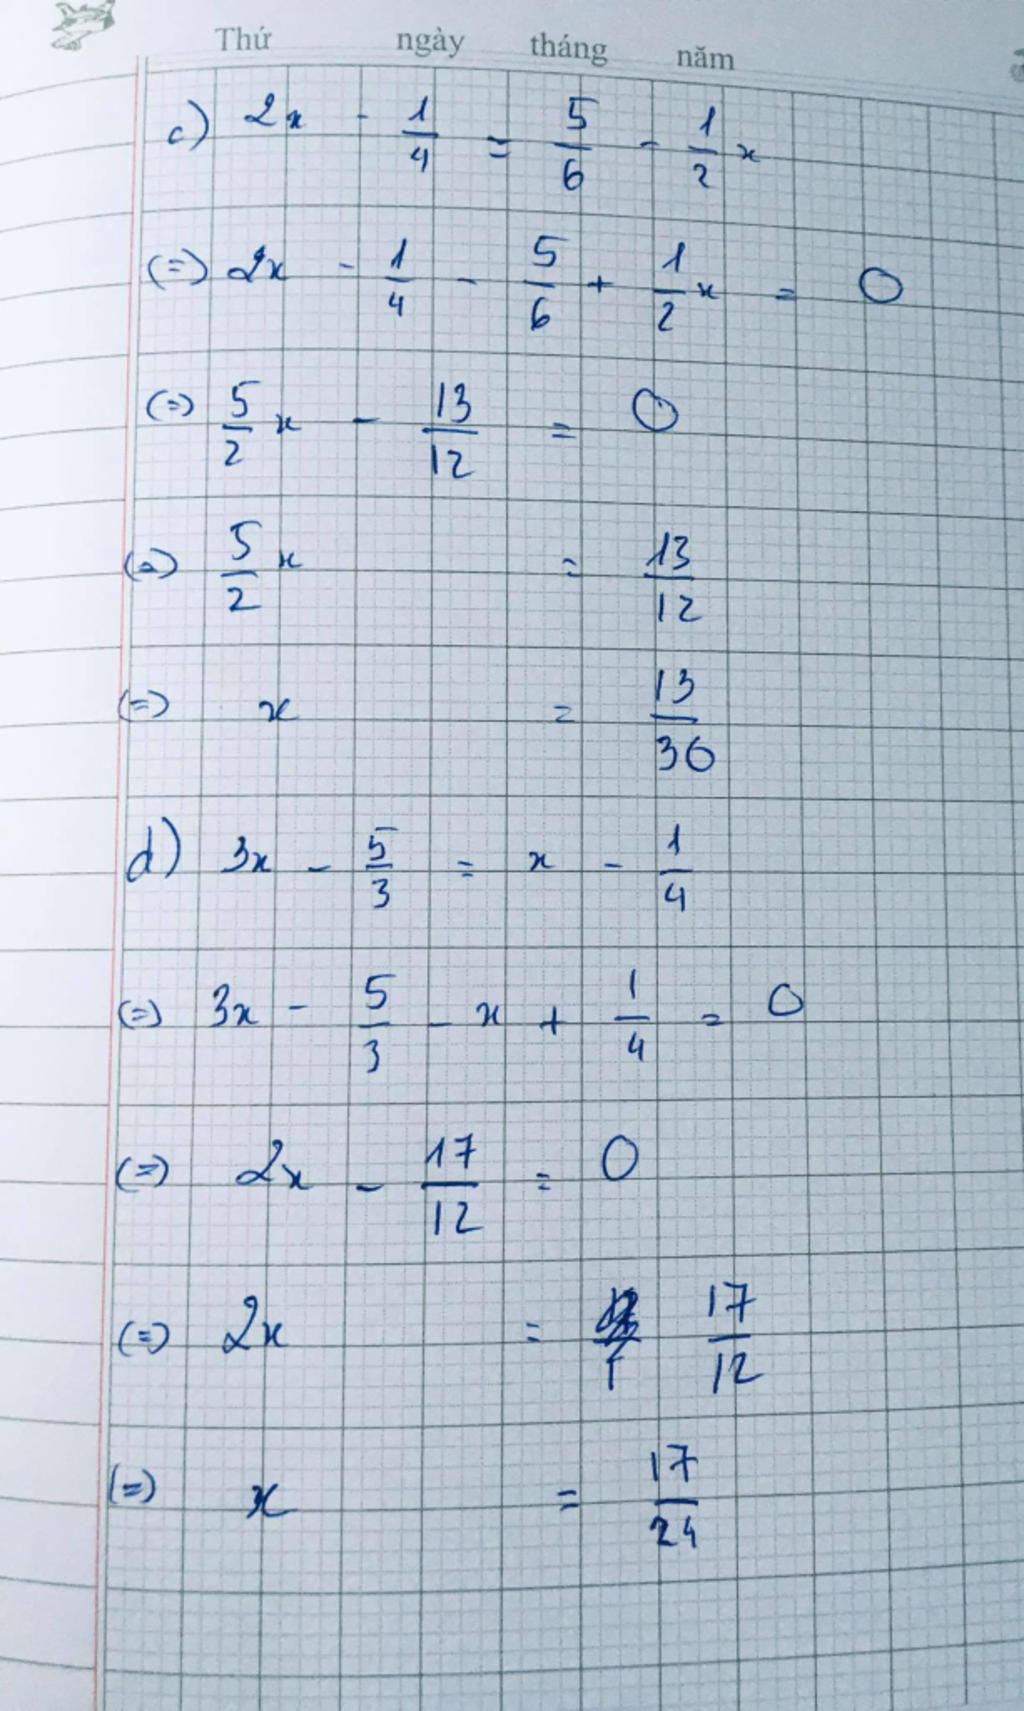 Thứ ngày tháng năm
c) 2x - 1/4 = 5/6 - 1/2 x
(=) 2x - 1/4 - 5/6 + 1/2 x = 0
(=) 5/2 x - 13/12 = 0
(=) 5/2 x = 13/12
(=) x = 13/30
d) 3x - 5/3 = x - 1/4
(=) 3x - 5/3 - x + 1/4 = 0
(=) 2x - 17/12 = 0
(=) 2x = 17/12
(=) x = 17/24